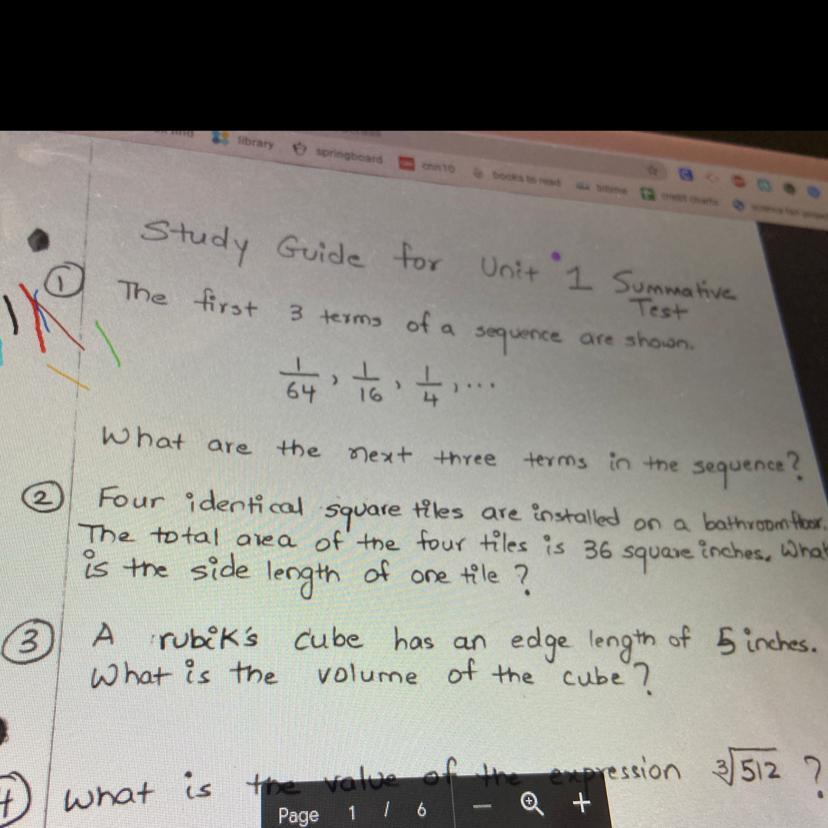 library springboard cnn10 books to read bitime credit charts
Study Guide for Unit 1 Summative
Test
① The first 3 terms of a sequence are shown.
1/64, 1/16, 1/4, ...
What are the next three terms in the sequence?
② Four identical square tiles are installed on a bathroom floor.
The total area of the four tiles is 36 square inches. What
is the side length of one tile?
③ A rubik's cube has an edge length of 5 inches.
What is the volume of the cube?
④ What is the value of the expression ∛512 ?
Page 1 / 6 − +